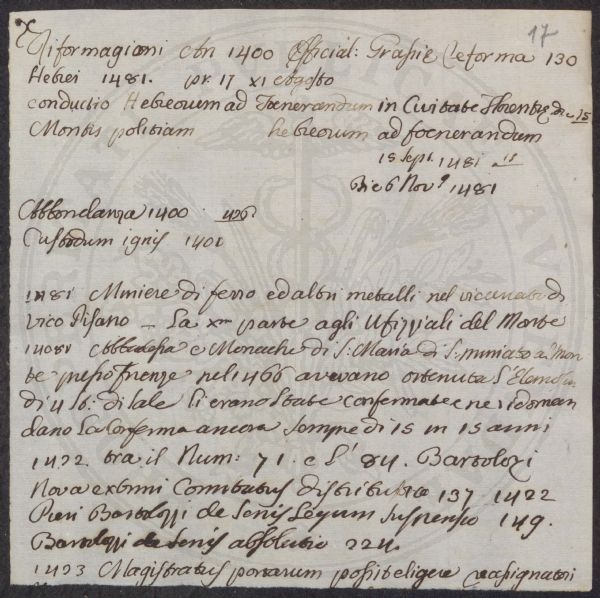 17
Riformagioni An 1400 Official: Grasie Reforma 130
Hebrei 1481. pr. 17 XI Agosto
conductio Hebreorum ad Foenerandum in Civitate Florentie die 15
Montis politiani hebreorum ad foenerandum
15 Sept. 1481 15
Die 6 Nov. 1481
Abbondanza 1400 426
Custodum ignis 1400
1481 Miniere di ferro ed altri metalli nel vicariato di
Vico Pisano _ La xma parte agli Ufizziali del Monte
Abbadessa e Monache di S: Maria di S: miniato a Mon
te presso Firenze nel 1466 avevano ottenuta L'Elemosina
di 4 sb: di sale li erano state confermate e ne ridoman
dano La Conferma ancora sempre di 15 in 15 anni
1422. tra il Num: 71. e L' 84. Bartolozi
Nova extimi Comitatus distributio 137 1422
Pieri Bartolozzi de Senis Legum suspensio 149.
Bartolozzi de Senis absolutio 224.
1423 Magistratus portarum possit eligere rassignatori